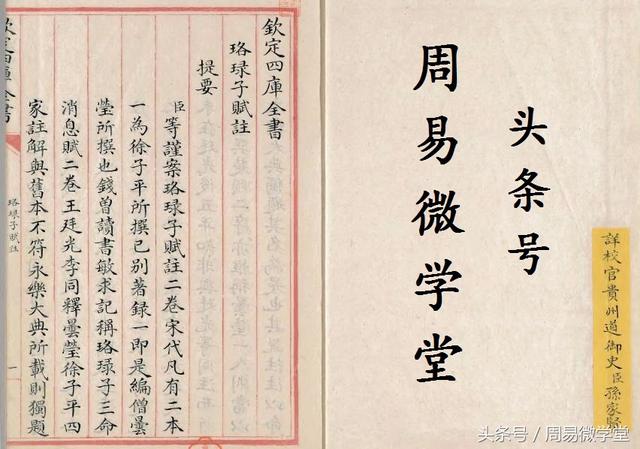 欽定四庫全書
珞琭子賦註
提要
臣等謹案珞琭子賦註二卷宋代凡有二本
一為徐子平所撰已別著録一即是編僧曇
瑩所撰也錢曽讀書敏求記稱珞琭子三命
消息賦二卷王廷光李同釋曇瑩徐子平四
家註解與舊本不符永樂大典所載則獨題
欽定四庫全書
珞琭子賦註
一
头条号
周易微学堂
詳校官貴州道御史臣孫家賢
头条号 / 周易微学堂